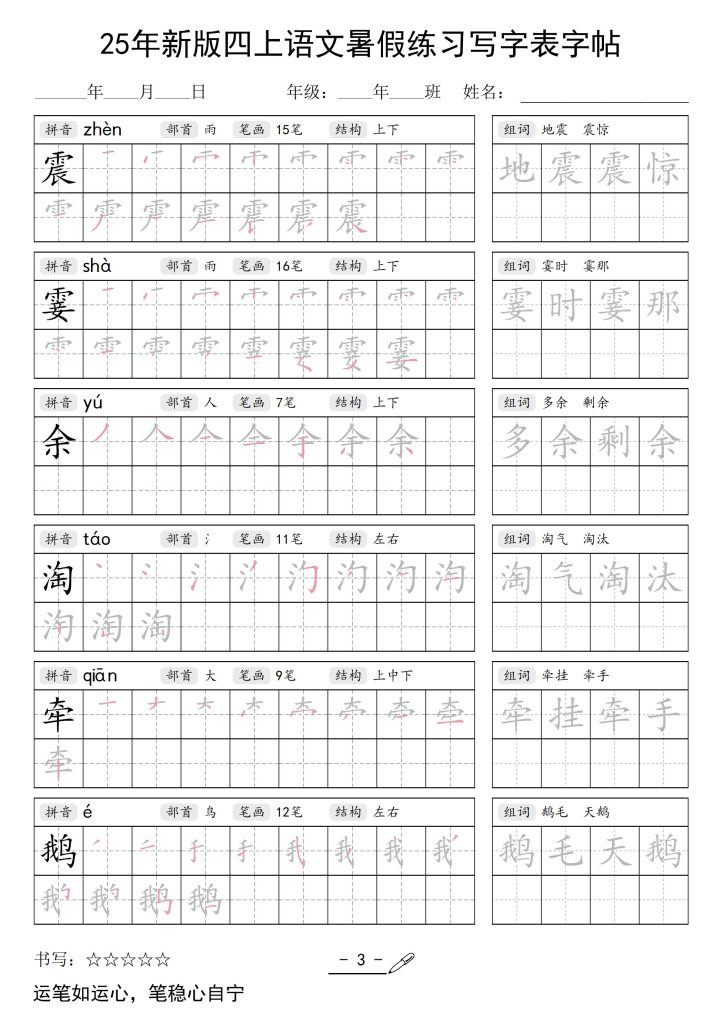 25年新版四上语文暑假练习写字表字帖
______年____月____日 年级：____年____班 姓名：____________________
拼音 zhèn 部首 雨 笔画 15笔 结构 上下 组词 地震 震惊
震 地震震惊
拼音 shà 部首 雨 笔画 16笔 结构 上下 组词 霎时 霎那
霎 霎时霎那
拼音 yú 部首 人 笔画 7笔 结构 上下 组词 多余 剩余
余 多余剩余
拼音 táo 部首 氵 笔画 11笔 结构 左右 组词 淘气 淘汰
淘 淘气淘汰
拼音 qiān 部首 大 笔画 9笔 结构 上中下 组词 牵挂 牵手
牵 牵挂牵手
拼音 é 部首 鸟 笔画 12笔 结构 左右 组词 鹅毛 天鹅
鹅 鹅毛天鹅
书写：☆☆☆☆☆ - 3 -
运笔如运心，笔稳心自宁